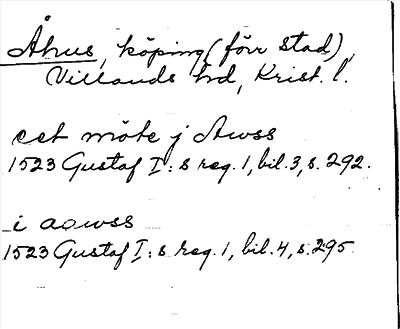 Åhus, köping (förr stad),
Villands hd, Krist. l.
eet möte j Awss
1523 Gustaf I:s reg. 1, bil. 3, s. 292.
i aowss
1523 Gustaf I:s reg. 1, bil. 4, s. 295.